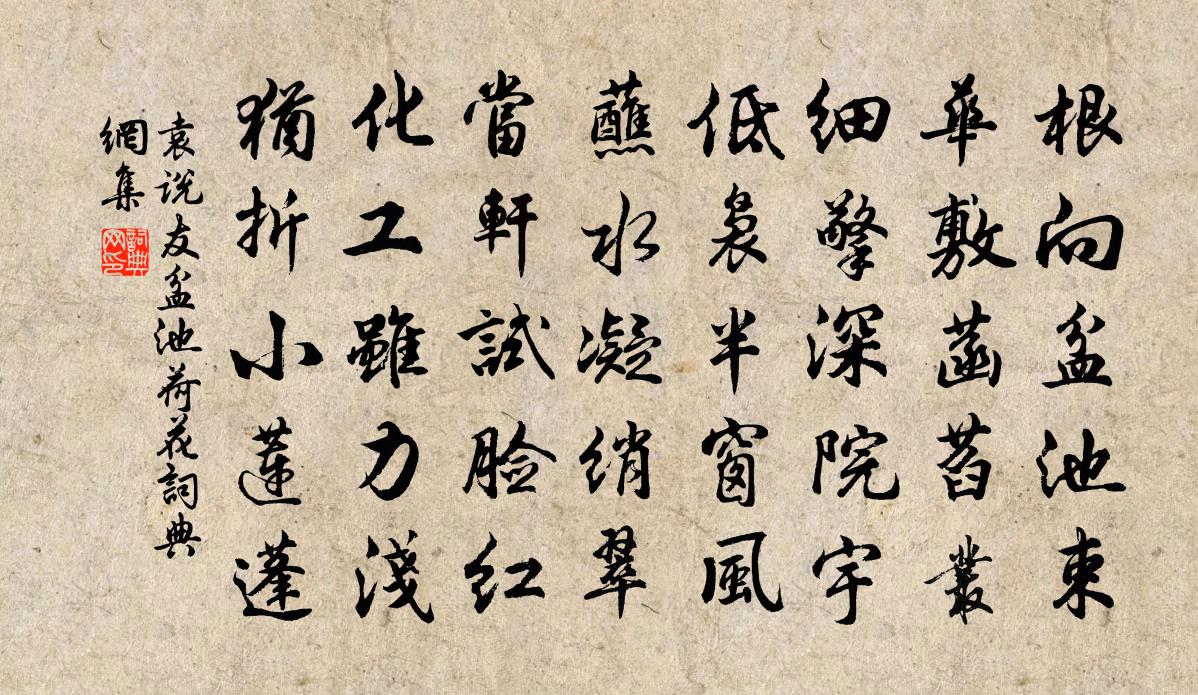 根向盆池束
華敷菡萏叢
細擎深院宇
低裊半窗風
蘸水凝綃翠
當軒試臉紅
化工雖力淺
猶折小蓮蓬
袁説友盆池荷花詞典
網集
詞典
网印